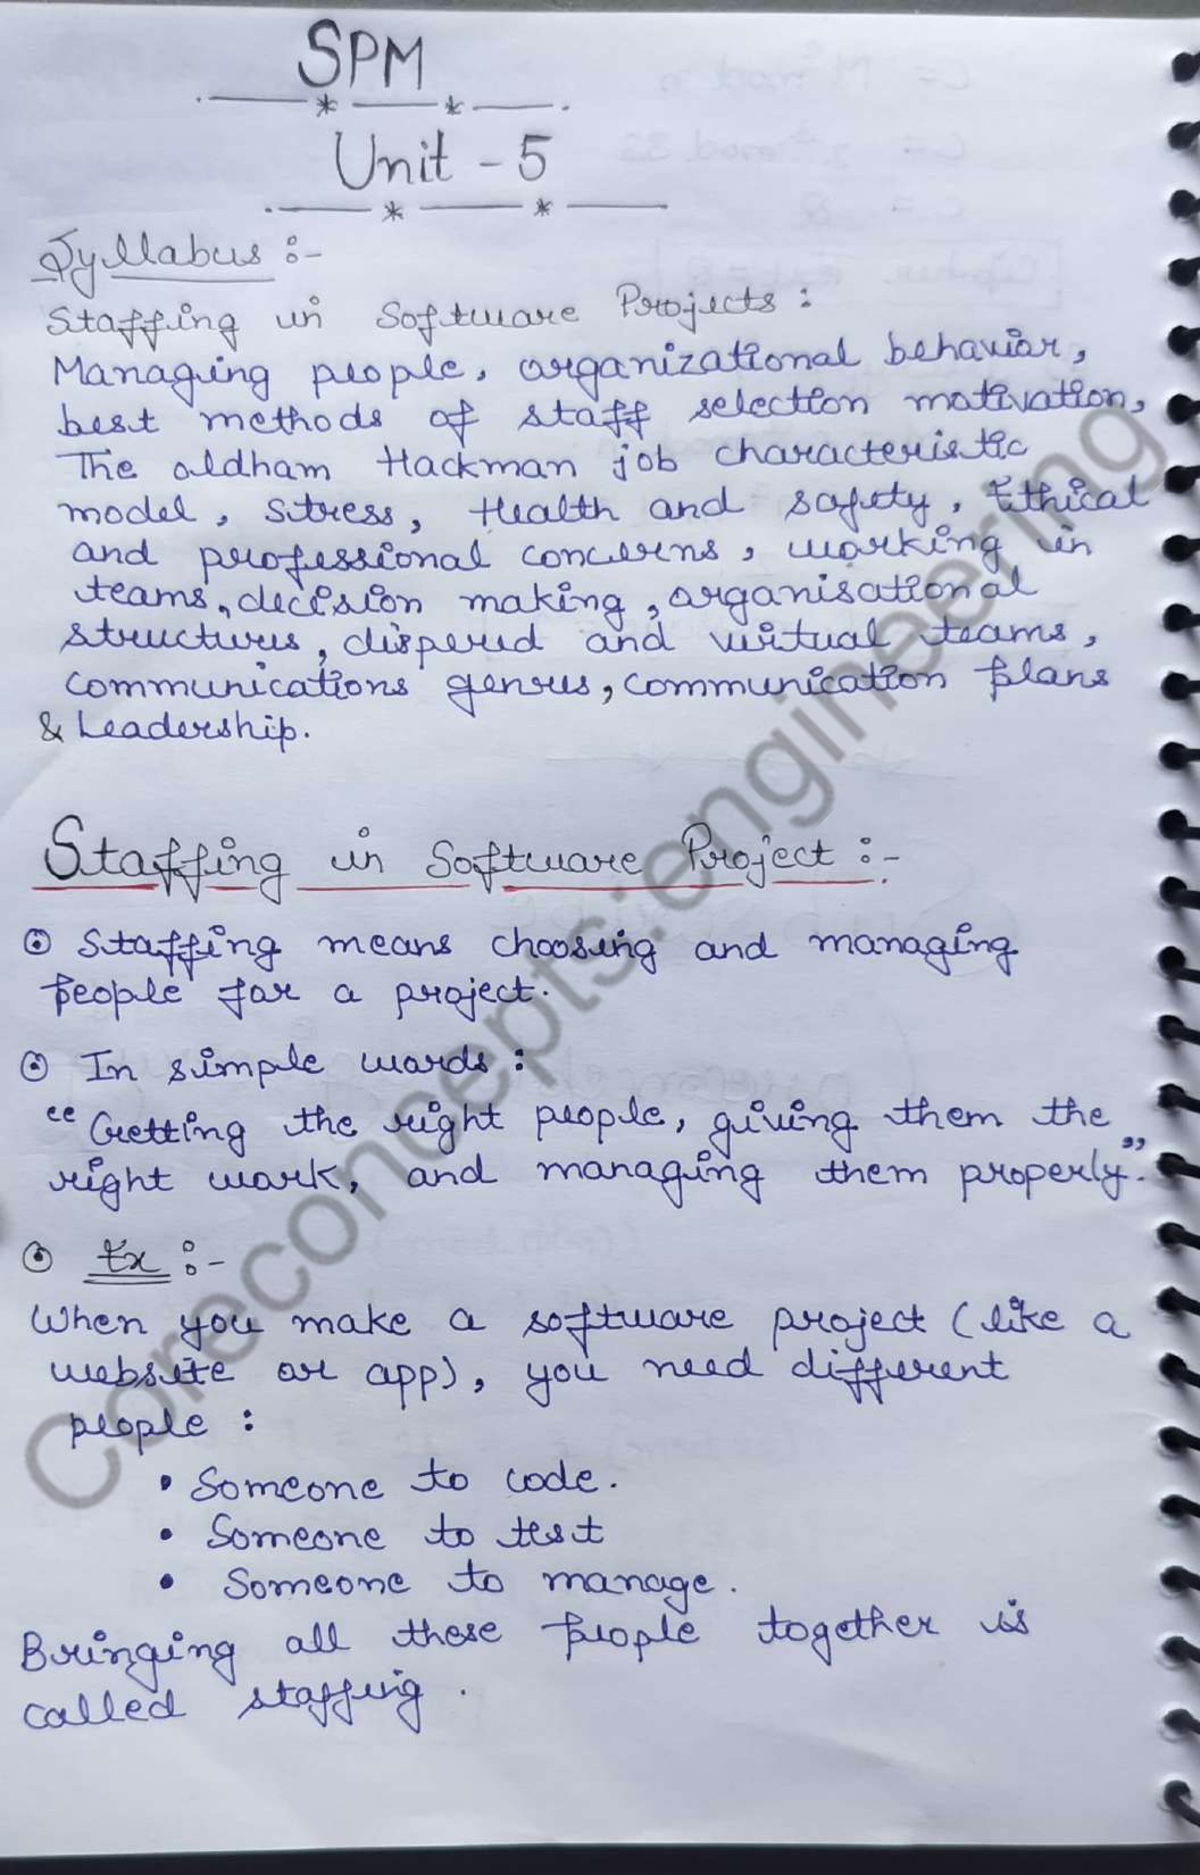 SPM
Unit - 5
Syllabus :-
Staffing in Software Projects :
Managing people, organizational behavior,
best methods of staff selection motivation,
The oldham Hackman job characteristic
model, stress, Health and safety, Ethical
and professional concerns, working in
teams, decision making, organisational
structures, dispered and virtual teams,
communications genres, communication plans
& Leadership.
Staffing in Software Project :-
Staffing means choosing and managing
people for a project.
In simple words :
"Getting the right people, giving them the
right work, and managing them properly."
Ex :-
When you make a software project (like a
website or app), you need different
people :
• Someone to code.
• Someone to test
• Someone to manage.
Bringing all these people together is
called staffing.
Coreconcepts.engineering